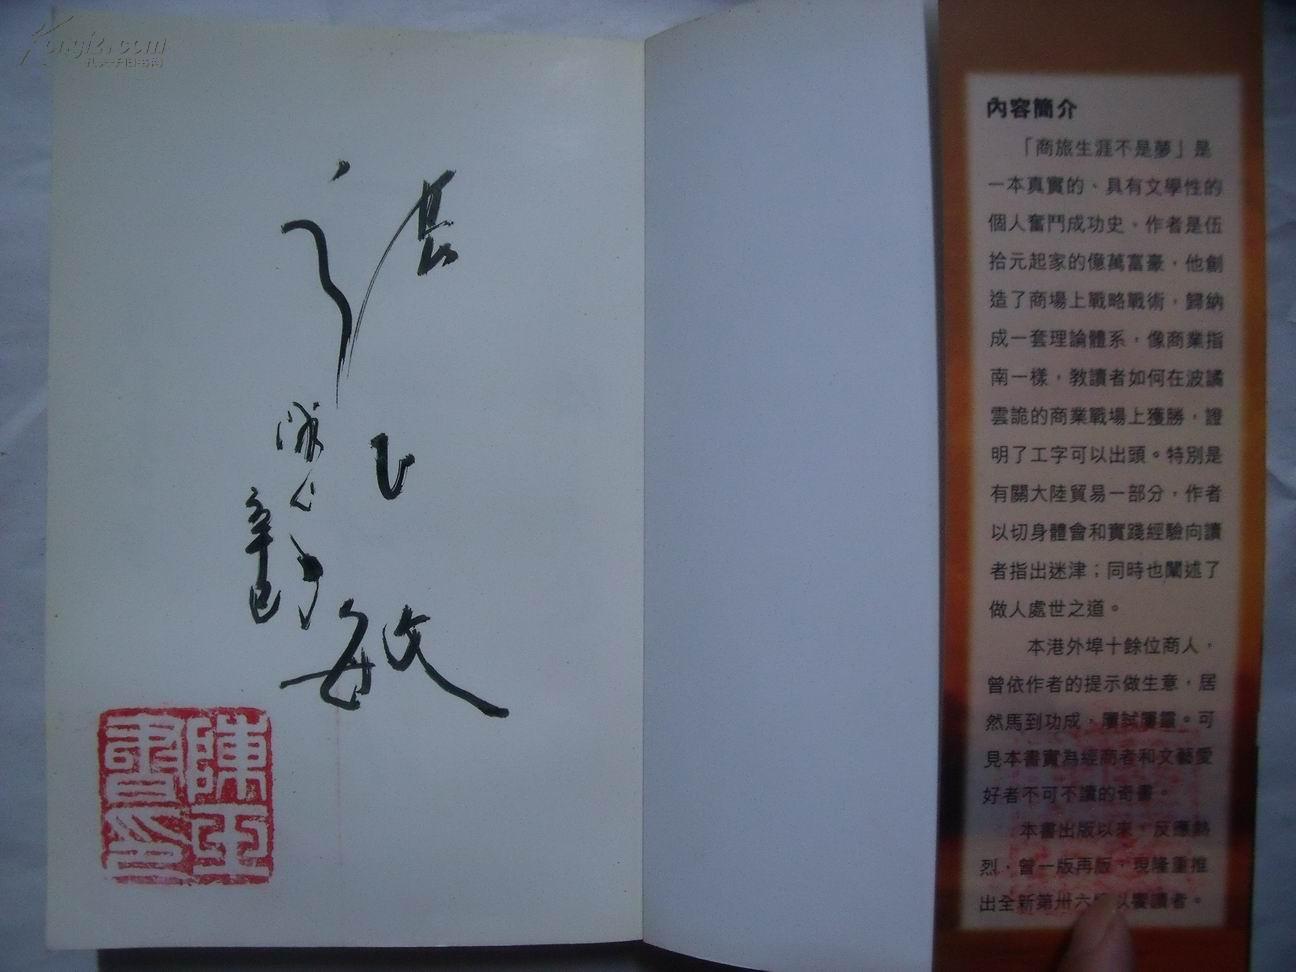 Kongfz.com
孔夫子旧书网
張
敏
辛巳
陳玉書印
內容簡介
「商旅生涯不是夢」是
一本真實的、具有文學性的
個人奮鬥成功史。作者是伍
拾元起家的億萬富豪，他創
造了商場上戰略戰術，歸納
成一套理論體系，像商業指
南一樣，教讀者如何在波譎
雲詭的商業戰場上獲勝，證
明了工字可以出頭。特別是
有關大陸貿易一部分，作者
以切身體會和實踐經驗向讀
者指出迷津；同時也闡述了
做人處世之道。
本港外埠十餘位商人，
曾依作者的提示做生意，居
然馬到功成，屢試屢靈。可
見本書實為經商者和文藝愛
好者不可不讀的奇書。
本書出版以來，反應熱
烈，曾一版再版，現隆重推
出全新第卅六以饗讀者。